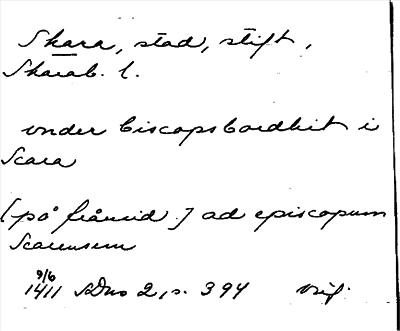 Skara, stad, stift,
Skarab. l.
under biscopsbordhit i
Scara
[på frånsid.] ad episcopum
Scarensem
9/6
1411 SDns 2, s. 394 Orig.